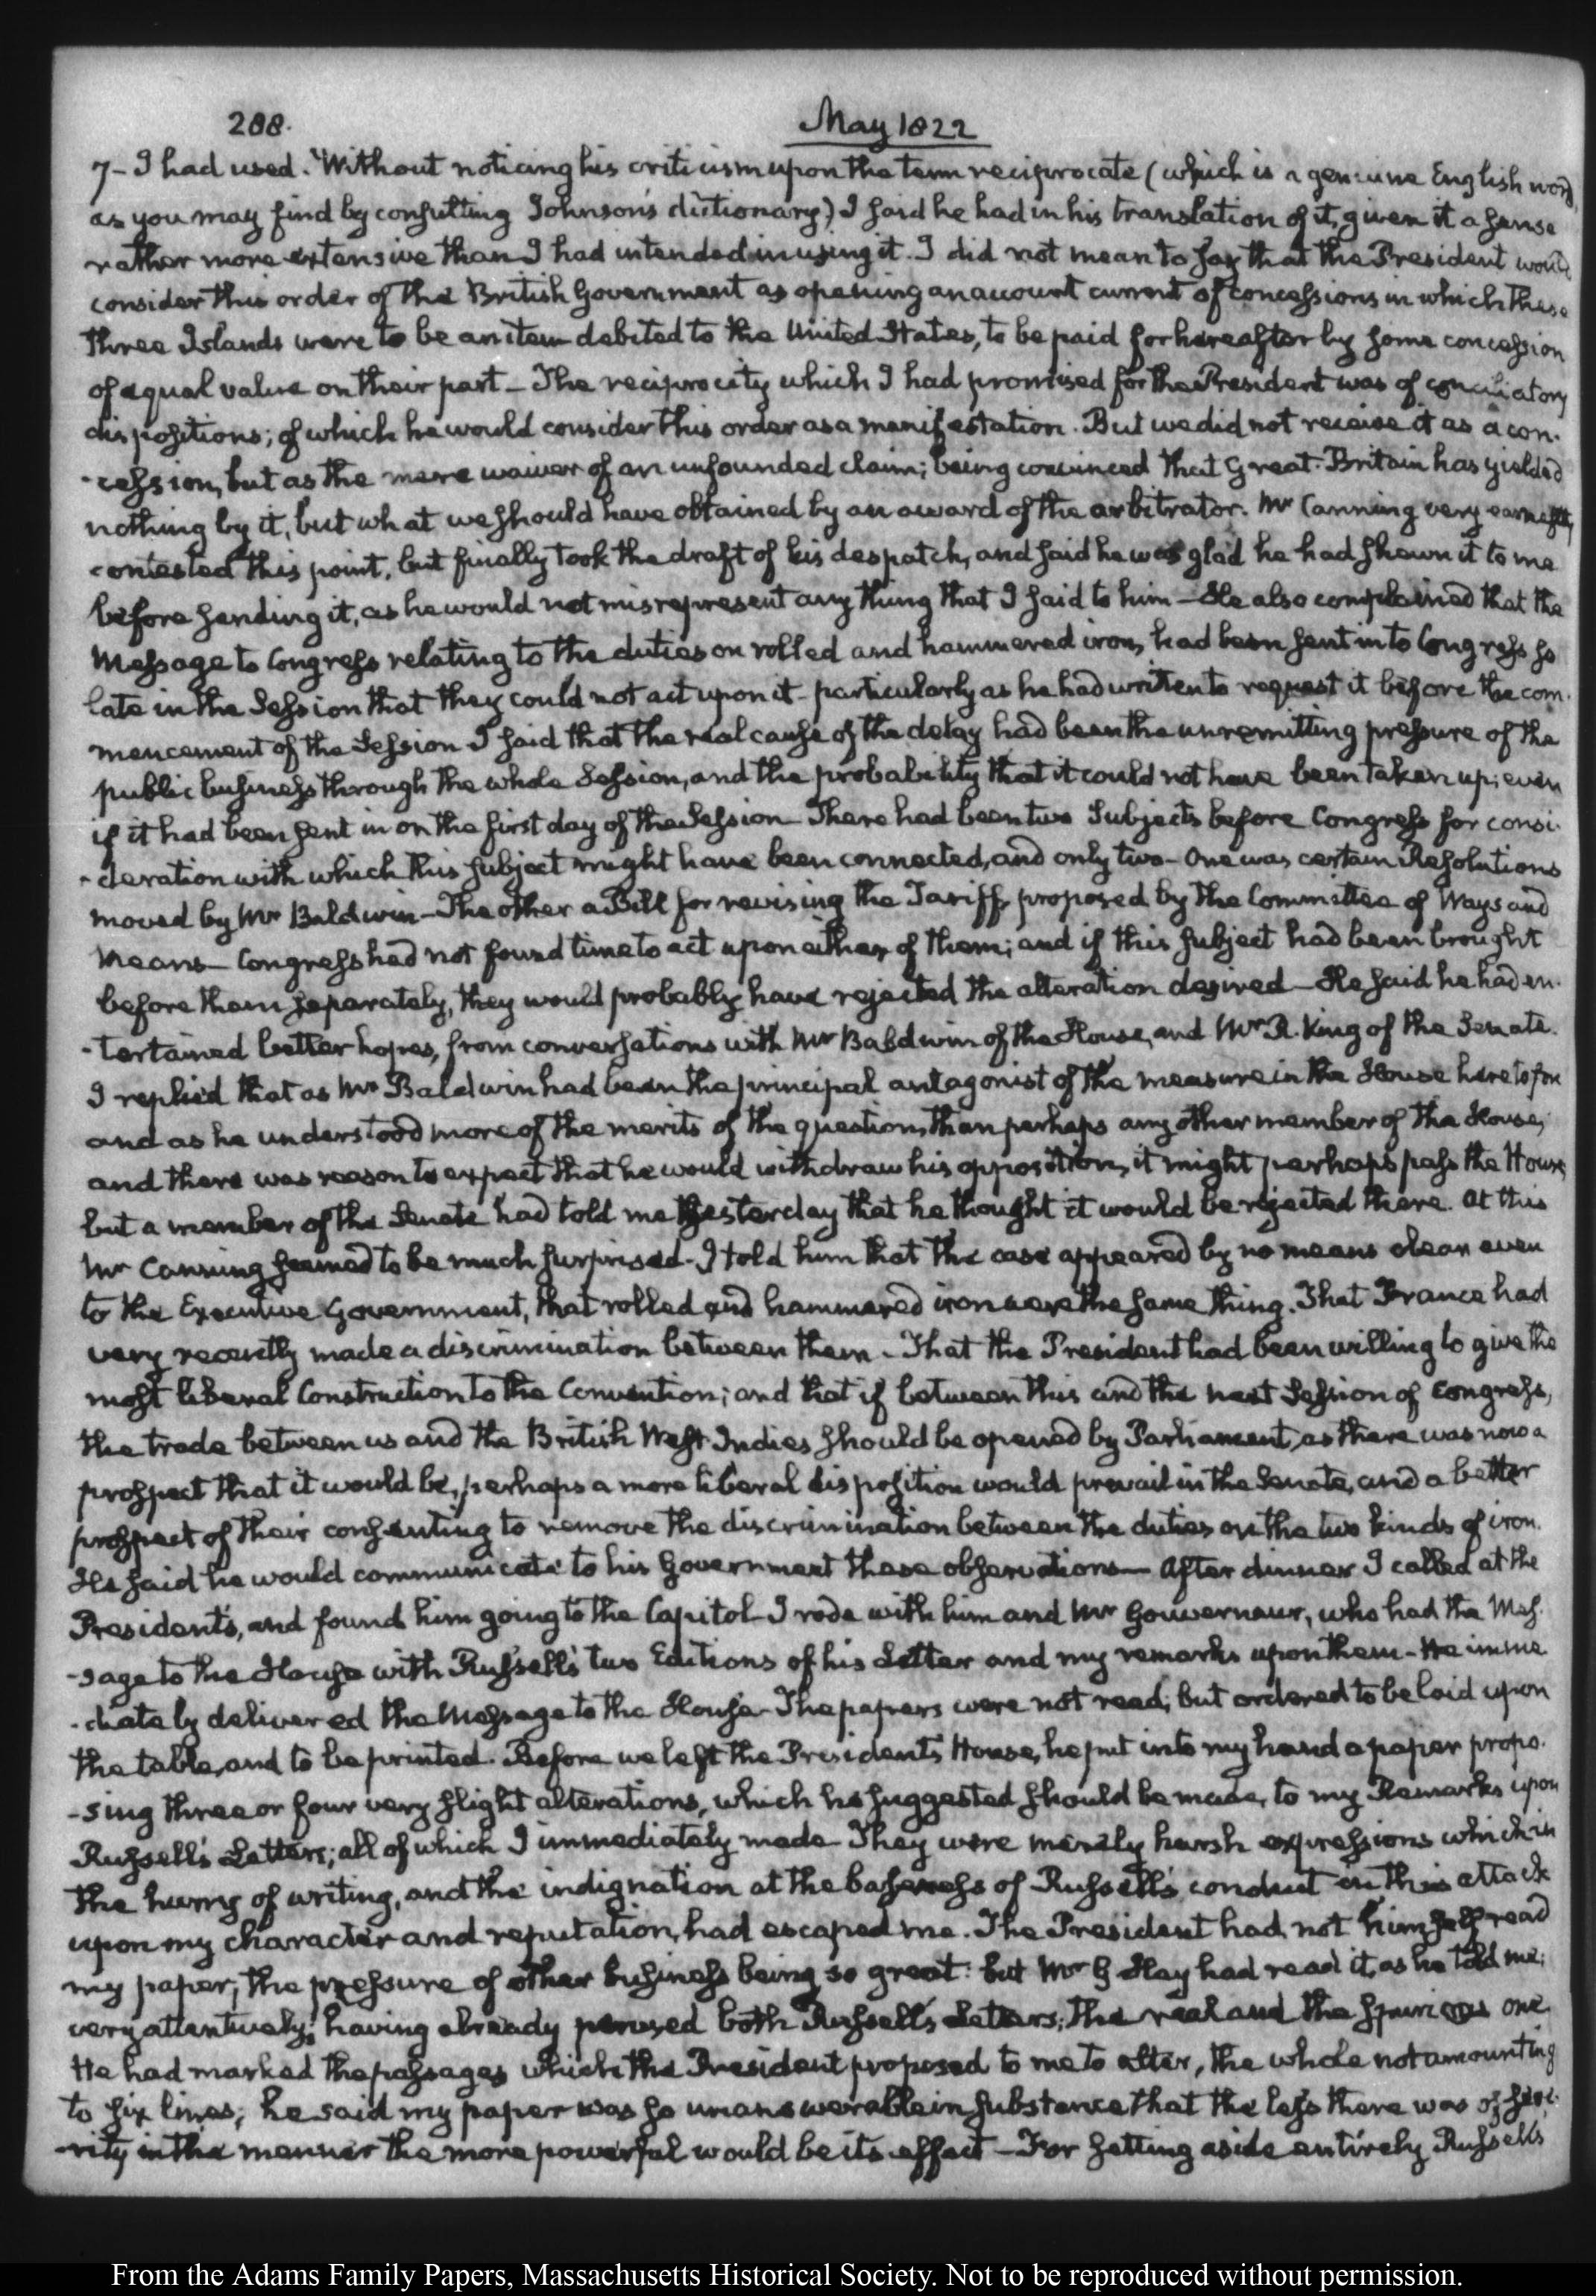 288.
May 1822
7- I had used. Without noticing his criticism upon the term reciprocate (which is a genuine English word,
as you may find by consulting Johnson's dictionary) I said he had in his translation of it, given it a sense
rather more extensive than I had intended in using it. I did not mean to say that the President would
consider this order of the British Government as opening an account current of concessions in which these
three Islands were to be an item debited to the United States, to be paid for hereafter by some concession
of equal value on their part — The reciprocity which I had promised for the President was of conciliatory
dispositions; of which he would consider this order as a manifestation. But we did not receive it as a con-
-cession, but as the mere waiver of an unfounded claim; being convinced that Great-Britain has yielded
nothing by it, but what we should have obtained by an award of the arbitrator. Mr Canning very earnestly
contested this point, but finally took the draft of his despatch, and said he was glad he had shewn it to me
before sending it, as he would not misrepresent any thing that I said to him — He also complained that the
Message to Congress relating to the duties on rolled and hammered iron, had been sent in to Congress so
late in the Session that they could not act upon it - particularly as he had written to request it before the com-
mencement of the Session I said that the real cause of the delay had been the unremitting pressure of the
public business through the whole Session, and the probability that it could not have been taken up, even
if it had been sent in on the first day of the Session — There had been two Subjects before Congress for consi-
-deration with which this subject might have been connected, and only two — One was certain Resolutions
moved by Mr Baldwin — The other a Bill for revising the Tariff, proposed by the Committee of Ways and
Means — Congress had not found time to act upon either of them; and if this subject had been brought
before them separately, they would probably have rejected the alteration desired — He said he had en-
-tertained better hopes, from conversations with Mr Baldwin of the House, and Mr R. King of the Senate.
I replied that as Mr Baldwin had been the principal antagonist of the measure in the House heretofore
and as he understood more of the merits of the question, than perhaps any other member of the House,
and there was reason to expect that he would withdraw his opposition, it might perhaps pass the House
but a member of the Senate had told me yesterday that he thought it would be rejected there. At this
Mr Canning seemed to be much surprised - I told him that the case appeared by no means clear even
to the Executive Government, that rolled and hammered iron were the same thing. That France had
very recently made a discrimination between them - That the President had been willing to give the
most liberal Construction to the Convention; and that if between this and the next Session of Congress,
the trade between us and the British West-Indies should be opened by Parliament, as there was now a
prospect that it would be, perhaps a more liberal disposition would prevail in the Senate, and a better
prospect of their consenting to remove the discrimination between the duties on the two kinds of iron.
He said he would communicate to his Government these observations — After dinner I called at the
President's, and found him going to the Capitol - I rode with him and Mr Gouverneur, who had the Mes-
-sage to the House with Russell's two Editions of his Letter and my remarks upon them - He imme
-diately delivered the Message to the House - The papers were not read; but ordered to be laid upon
the table, and to be printed. Before we left the President's House, he put into my hand a paper propo-
-sing three or four very slight alterations, which he suggested should be made, to my Remarks upon
Russell's Letters; all of which I immediately made They were merely harsh expressions which in
the hurry of writing, and the indignation at the baseness of Russell's conduct in this attack
upon my character and reputation, had escaped me. The President had not himself read
my paper; the pressure of other business being so great: but Mr G Hay had read it, as he told me;
very attentively; having already perused both Russell's Letters; the real and the spurious one.
He had marked the passages which the President proposed to me to alter, the whole not amounting
to six lines; he said my paper was so unanswerable in substance that the less there was of seve-
-rity in the manner the more powerful would be its effect — For setting aside entirely Russell's
From the Adams Family Papers, Massachusetts Historical Society. Not to be reproduced without permission.